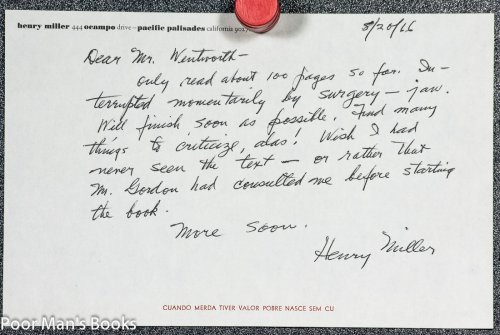 henry miller 444 ocampo drive – pacific palisades california 902
8/20/66
Dear Mr. Wentworth –
Only read about 100 pages so far. In-
terrupted momentarily by surgery – jaw.
Will finish soon as possible. Find many
things to criticize, alas! Wish I had
never seen the text – or rather that
Mr. Gordon had consulted me before starting
the book.
More soon.
Henry Miller
CUANDO MERDA TIVER VALOR POBRE NASCE SEM CU
Poor Man's Books